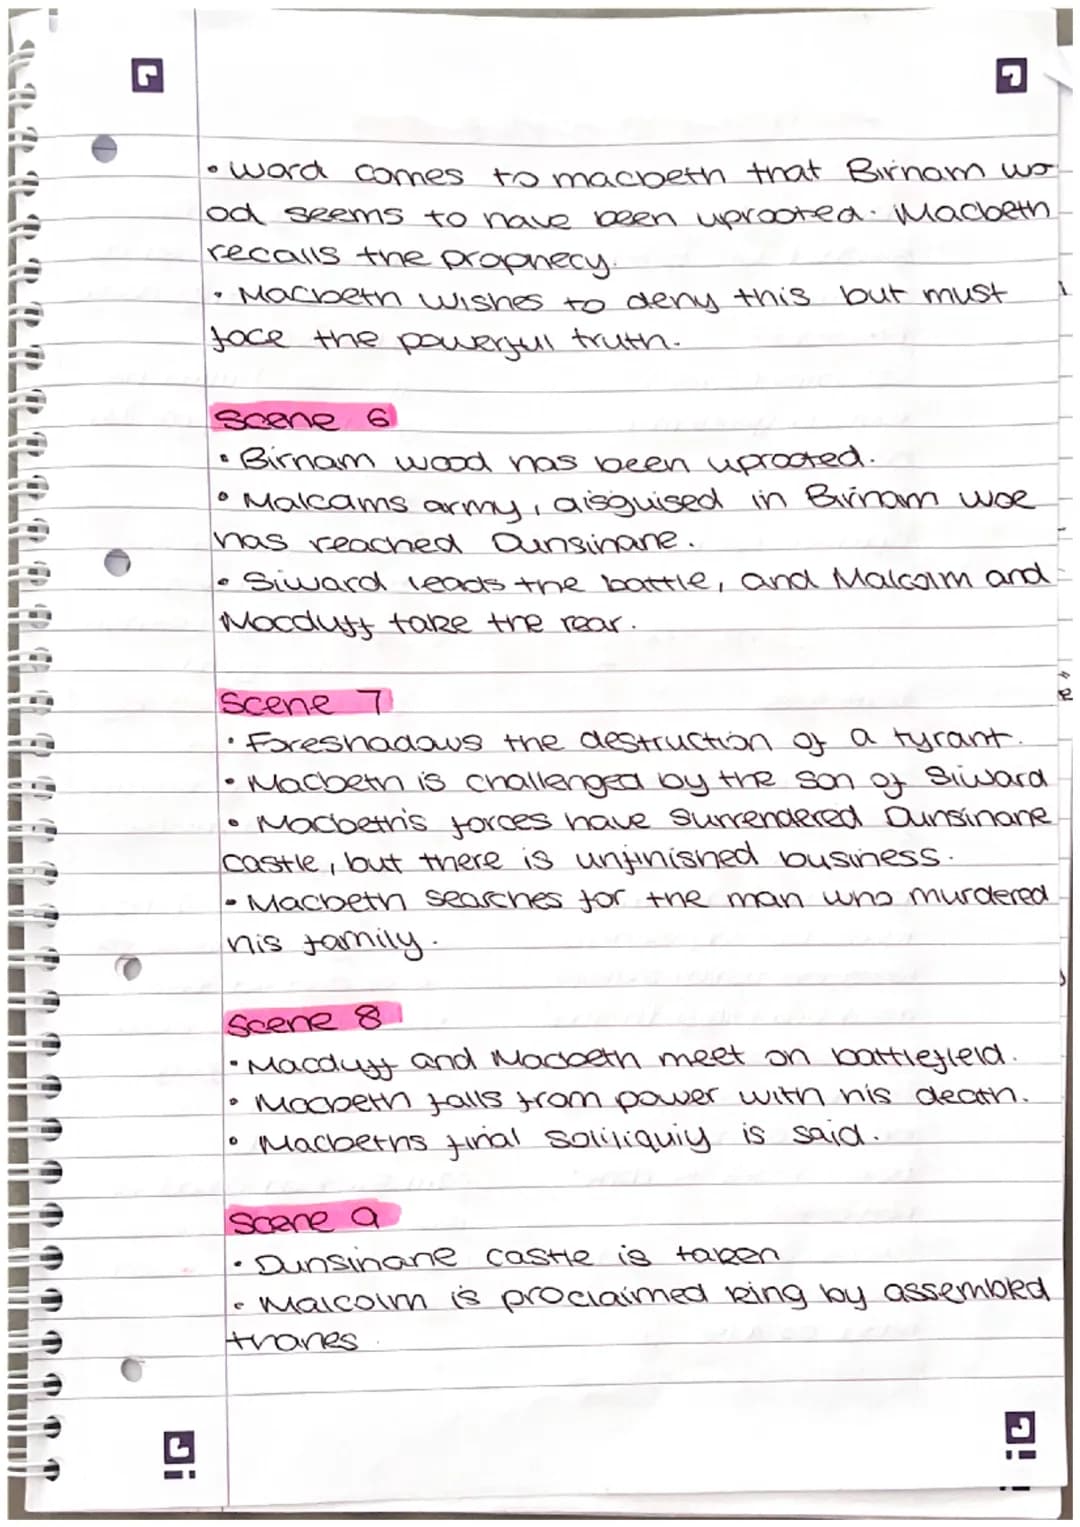 • word comes to macbeth that Birnam wo
od seems to have been uprooted. Macbeth
recalls the prophecy.
• Macbeth wishes to deny this but must
face the powerful truth.
Scene 6
• Birnam wood has been uprooted.
• Malcoms army, disguised in Birnam woe
has reached Dunsinane.
• Siward leads the battle, and Malcolm and
Macduff take the rear.
Scene 7
• Foreshadows the destruction of a tyrant.
• Macbeth is challenged by the son of Siward
• Macbeth's forces have surrendered Dunsinane
castle, but there is unfinished business.
• Macbeth searches for the man who murdered
his family.
Scene 8
• Macduff and Macbeth meet on battlefield.
• Macbeth falls from power with his death.
• Macbeths final soliliquiy is said.
Scene 9
• Dunsinane castle is taken
• Malcolm is proclaimed king by assembled
thanes.